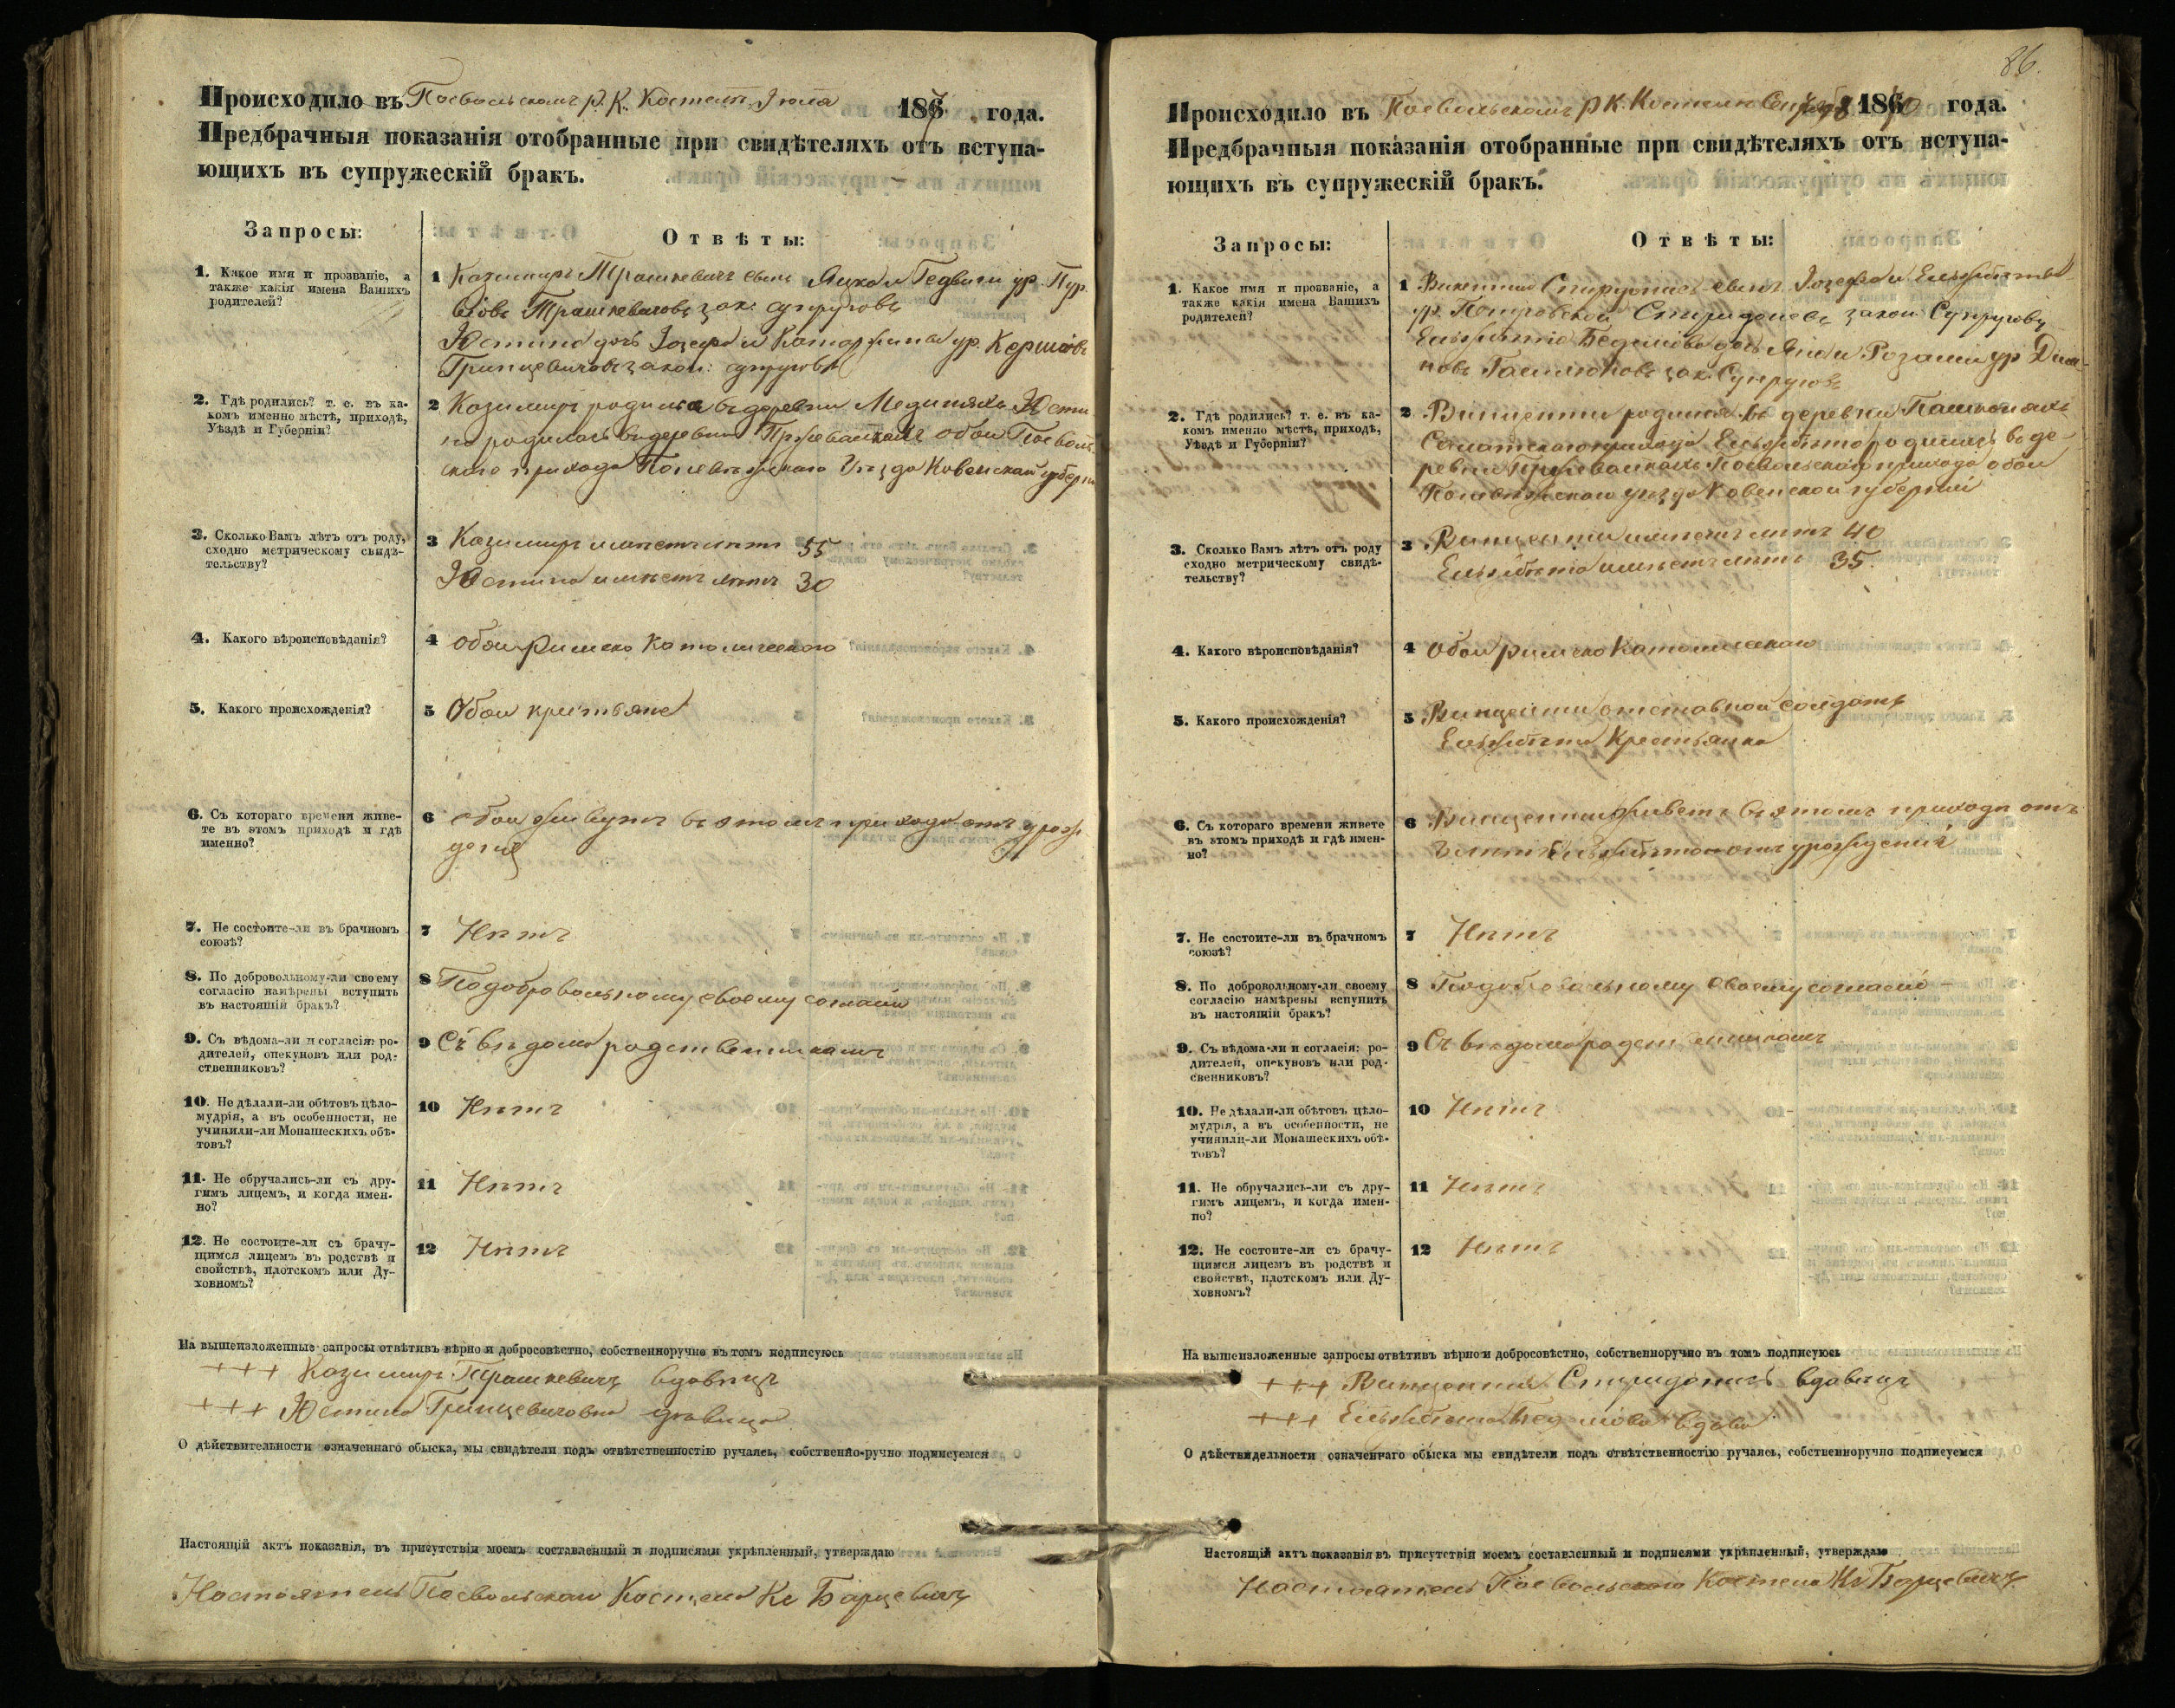 Происходило въ Поевольскомъ Р. К. Костелѣ Іюля 187 года.
Предбрачныя показанія отобранные при свидѣтеляхъ отъ вступа-
ющихъ въ супружескій бракъ.
Запросы:
Отвѣты:
1. Какое имя и прозваніе, а
также какія имена Вашихъ
родителей?
1 Казимиръ Трашкевичъ сынъ Яцка и Гедвиги ур. Пур.
Трашкевичовъ зак: супруговъ
Юстина дочь Іозефа и Катаржина ур. Кершисъ
Гринцевичовъ закон: супруговъ
2. Гдѣ родились? т. е. въ ка-
комъ именно мѣстѣ, приходѣ,
Уѣздѣ и Губерніи?
2 Казимиръ родился въ деревни Юсти-
на родилась въ деревни обои Поеволь-
скаго прихода Поневѣжскаго Уѣзда Ковенской губерніи
3. Сколько Вамъ лѣтъ отъ роду,
сходно метрическому свидѣ-
тельству?
3 Казимиръ имѣетъ лѣтъ 55
Юстина имѣетъ лѣтъ 30
4. Какого вѣроисповѣданія?
4 обои Римско Католическаго
5. Какого происхожденія?
5 Обои крестьяне
6. Съ котораго времени живе-
те въ этомъ приходѣ и гдѣ
именно?
6 обои живутъ въ этомъ приходѣ отъ урож
денія
7. Не состоите-ли въ брачномъ
союзѣ?
7 Нѣтъ
8. По добровольному-ли своему
согласію намѣрены вступить
въ настоящій бракъ?
8 По добровольному своему согласію
9. Съ вѣдома-ли и согласія: ро-
дителей, опекуновъ или род-
ственниковъ?
9 Съ вѣдома родственниковъ
10. Не дѣлали-ли обѣтовъ цѣло-
мудрія, а въ особенности, не
учинили-ли Монашескихъ обѣ-
товъ?
10 Нѣтъ
11. Не обручались-ли съ дру-
гимъ лицемъ, и когда имен-
но?
11 Нѣтъ
12. Не состоите-ли съ брачу-
щимся лицемъ въ родствѣ и
свойствѣ, плотскомъ или Ду-
ховномъ?
12 Нѣтъ
На вышеизложенные запросы отвѣтивъ вѣрно и добросовѣстно, собственноручно въ томъ подписуюсь
+++ Казимиръ Трашкевичъ вдовецъ
+++ Юстина Гринцевичовна дѣвица
О дѣйствительности означеннаго обыска, мы свидѣтели подъ отвѣтственностію ручаясь, собственно-ручно подписуемся
Настоящій актъ показанія, въ присутствіи моемъ составленный и подписями укрѣпленный, утверждаю
Настоятель Поевольскаго Костела Кс Барцевичъ
86.
Происходило въ Поевольскомъ Р К. Костелѣ 8 1870 года.
Предбрачныя показанія отобранные при свидѣтеляхъ отъ вступа-
ющихъ въ супружескій бракъ.
Запросы:
Отвѣты:
1. Какое имя и прозваніе, а
также какія имена Вашихъ
родителей?
1 Викентій сынъ Іозефа и Ельжбѣты
ур. закон: Супруговъ
Ельжбѣта дочь и Розаліи ур
зак. Супруговъ
2. Гдѣ родились? т. е. въ ка-
комъ именно мѣстѣ, приходѣ,
Уѣздѣ и Губерніи?
2 Винцентій родился въ деревни
прихода Ельжбѣта родилась въ де-
ревни Поевольскаго прихода обои
Поневѣжскаго уѣзда Ковенской губерніи
3. Сколько Вамъ лѣтъ отъ роду
сходно метрическому свидѣ-
тельству?
3 Винцентій имѣетъ лѣтъ 40
Ельжбѣта имѣетъ лѣтъ 35.
4. Какого вѣроисповѣданія?
4 Обои римско Католическаго
5. Какого происхожденія?
5 Винцентій отставной солдатъ
Ельжбѣта Крестьянка
6. Съ котораго времени живете
въ этомъ приходѣ и гдѣ имен-
но?
6 Винцентій живетъ въ этомъ приходѣ отъ
лѣтъ Ельжбѣта отъ урожденія
7. Не состоите-ли въ брачномъ
союзѣ?
7 Нѣтъ
8. По добровольному-ли своему
согласію намѣрены вступить
въ настоящій бракъ?
8 По добровольному своему согласію
9. Съ вѣдома-ли и согласія: ро-
дителей, опекуновъ или род-
свенниковъ?
9 Съ вѣдома родственниковъ
10. Не дѣлали-ли обѣтовъ цѣло-
мудрія, а въ особенности, не
учинили-ли Монашескихъ обѣ-
товъ?
10 Нѣтъ
11. Не обручались-ли съ дру-
гимъ лицемъ, и когда имен-
но?
11 Нѣтъ
12. Не состоите-ли съ брачу-
щимся лицемъ въ родствѣ и
свойствѣ, плотскомъ или Ду-
ховномъ?
12 Нѣтъ
На вышеизложенные запросы отвѣтивъ вѣрно и добросовѣстно, собственноручно въ томъ подписуюсь
+++ Винцентій Спиридонисъ вдовецъ
+++ Ельжбѣта вдова
О дѣйствидельности означеннаго обыска мы свидѣтели подъ отвѣтственностію ручаясь, собственноручно подписуемся
Настоящій актъ показанія въ присутствіи моемъ составленный и подписями укрѣпленный, утверждаю
Настоятель Поевольскаго Костела Кс Барцевичъ